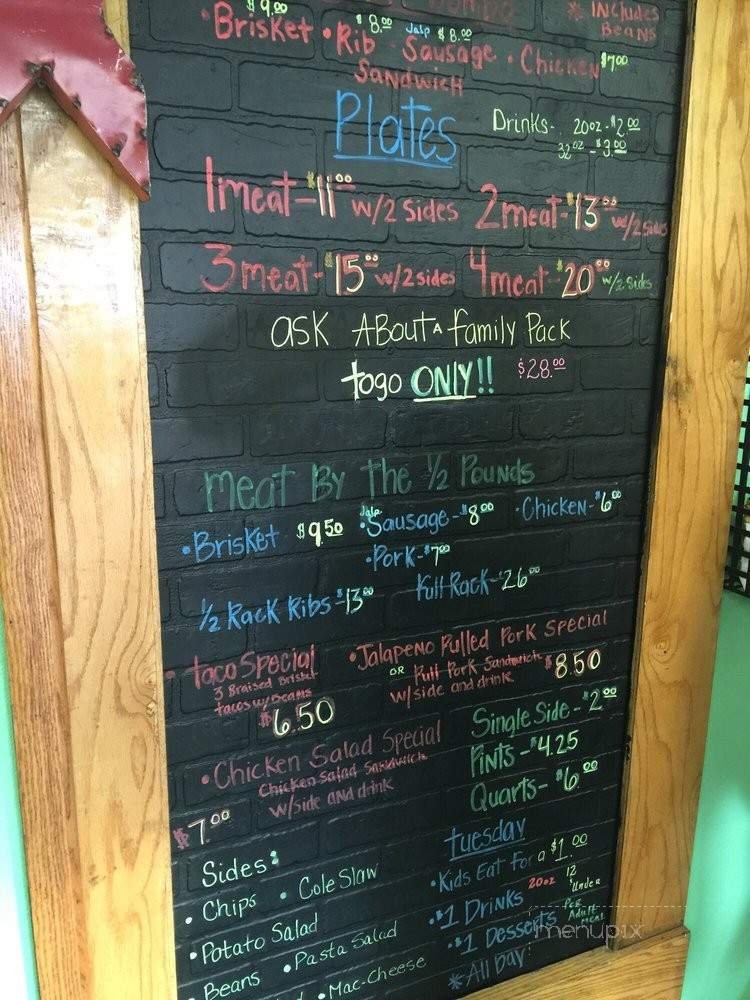 * INCLUDES BEANS
$9.00 $8.00 Jalp $8.00
• Brisket • Rib • Sausage • Chicken $7.00
SANDWICH
Plates
Drinks - 20oz - $2.00
32oz - $3.00
1 meat - $11.00 w/2 Sides 2 meat - $13.00 w/2 sides
3 meat - $15.00 w/2 sides 4 meat - $20.00 w/2 Sides
ask ABout A family Pack
togo ONLY!! $28.00
meat By The 1/2 Pounds
• Brisket $9.50 • Jalp Sausage - $8.00 • Chicken - $6.00
• Pork - $7.00
1/2 Rack Ribs - $13.00 Full Rack - $26.00
• taco Special
3 Braised Brisket
tacos w/ Beans
$6.50
• Jalapeno Pulled Pork Special
OR Pull Pork Sandwich
w/side and drink $8.50
• Chicken Salad Special
Chicken Salad Sandwich
w/side and drink
$7.00
Single Side - $2.00
Pints - $4.25
Quarts - $6.00
Sides:
• Chips • Cole Slaw
• Potato Salad
• Beans • Pasta Salad
• Mac-Cheese
tuesday
• Kids Eat For a $1.00
12 & Under
Per Adult Meal
• $1 Drinks 20oz
• $1 Desserts
* All Day
menupix